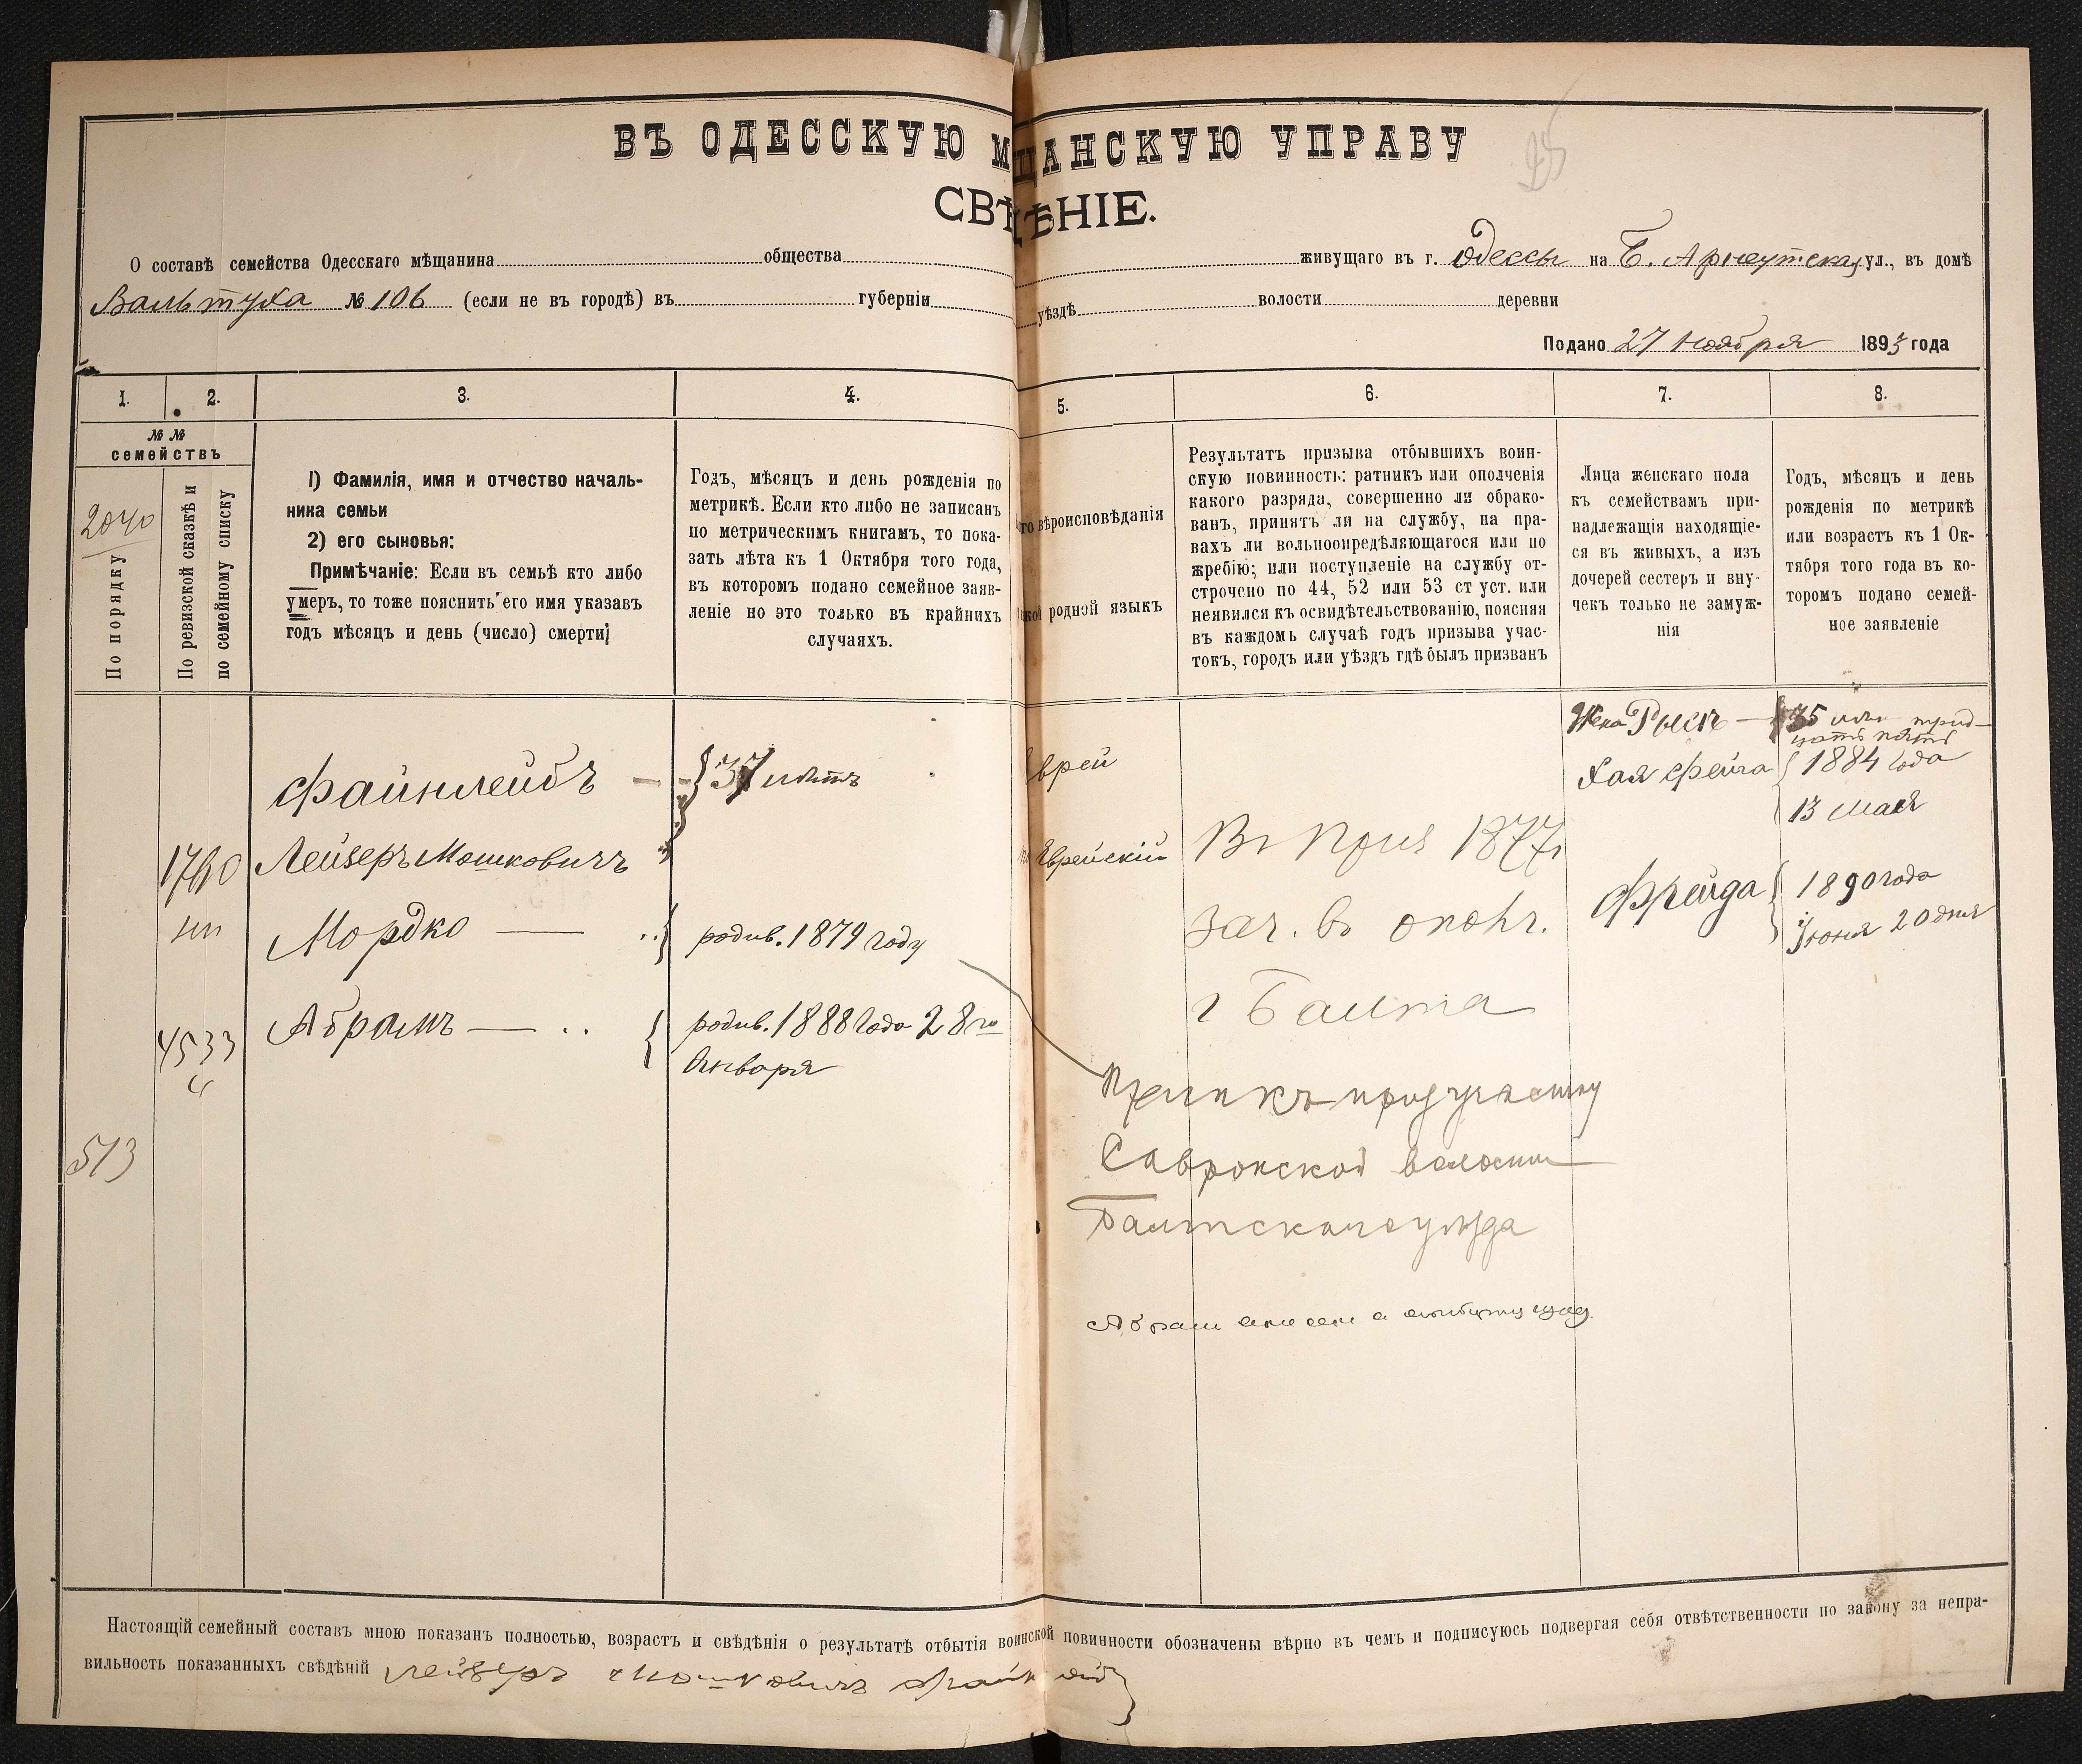 ВЪ ОДЕССКУЮ М ЩАНСКУЮ УПРАВУ
25
СВѢДѢНІЕ.
О составѣ семейства Одесскаго мѣщанина общества живущаго въ г. Одессы на Б. Арнеутская ул., въ домѣ
Вальтуха № 106 (если не въ городѣ) въ губерніи уѣздѣ волости деревни
Подано 27 Ноября 1893 года
1. 2. 3. 4. 5. 6. 7. 8.
№ №
семействъ
2040
По порядку
По ревизской сказкѣ и
по семейному списку
1) Фамилія, имя и отчество началь-
ника семьи
2) его сыновья:
Примѣчаніе: Если въ семьѣ кто либо
умеръ, то тоже пояснить его имя указавъ
годъ мѣсяцъ и день (число) смерти;
Годъ, мѣсяцъ и день рожденія по
метрикѣ. Если кто либо не записанъ
по метрическимъ книгамъ, то пока-
зать лѣта къ 1 Октября того года,
въ которомъ подано семейное заяв-
леніе но это только въ крайнихъ
случаяхъ.
го вѣроисповѣданія
родной языкъ
Результатъ призыва отбывшихъ воин-
скую повинность: ратникъ или ополченія
какого разряда, совершенно ли обрако-
ванъ, принятъ ли на службу, на пра-
вахъ ли вольноопредѣляющагося или по
жребію; или поступленіе на службу от-
строчено по 44, 52 или 53 ст уст. или
неявился къ освидѣтельствованію, поясняя
въ каждомъ случаѣ годъ призыва учас-
токъ, городъ или уѣздъ гдѣ былъ призванъ
Лица женскаго пола
къ семействамъ при-
надлежащія находящіе-
ся въ живыхъ, а изъ
дочерей сестеръ и вну-
чекъ только не замуж-
нія
Годъ, мѣсяцъ и день
рожденія по метрикѣ
или возрастъ къ 1 Ок-
тября того года въ ко-
торомъ подано семей-
ное заявленіе
Файнлейбъ — 37 лѣтъ
1760 Лейзеръ Мошковичъ
Мордко — родив. 1879 году
4533 Абрамъ — родив. 1888 года 28го
Января
513
врей
Еврейскій
Въ 1877
зач. въ ополч.
г Балта
Припикъ къ призучастку
Савронской волости
Балтскаго уѣзда
Абрам внесен
Жена Рысь — 35 лѣт трид-
цать пять
Хая Фейга 1884 года
13 Мая
Фрейда 1890 года
Іюня 20 дня
Настоящій семейный составъ мною показанъ полностью, возрастъ и свѣдѣнія о результатѣ отбытія воинской повинности обозначены вѣрно въ чемъ и подписуюсь подвергая себя отвѣтственности по закону за непра-
вильность показанныхъ свѣдѣній Лейзеръ Мошковичъ Файнлейб